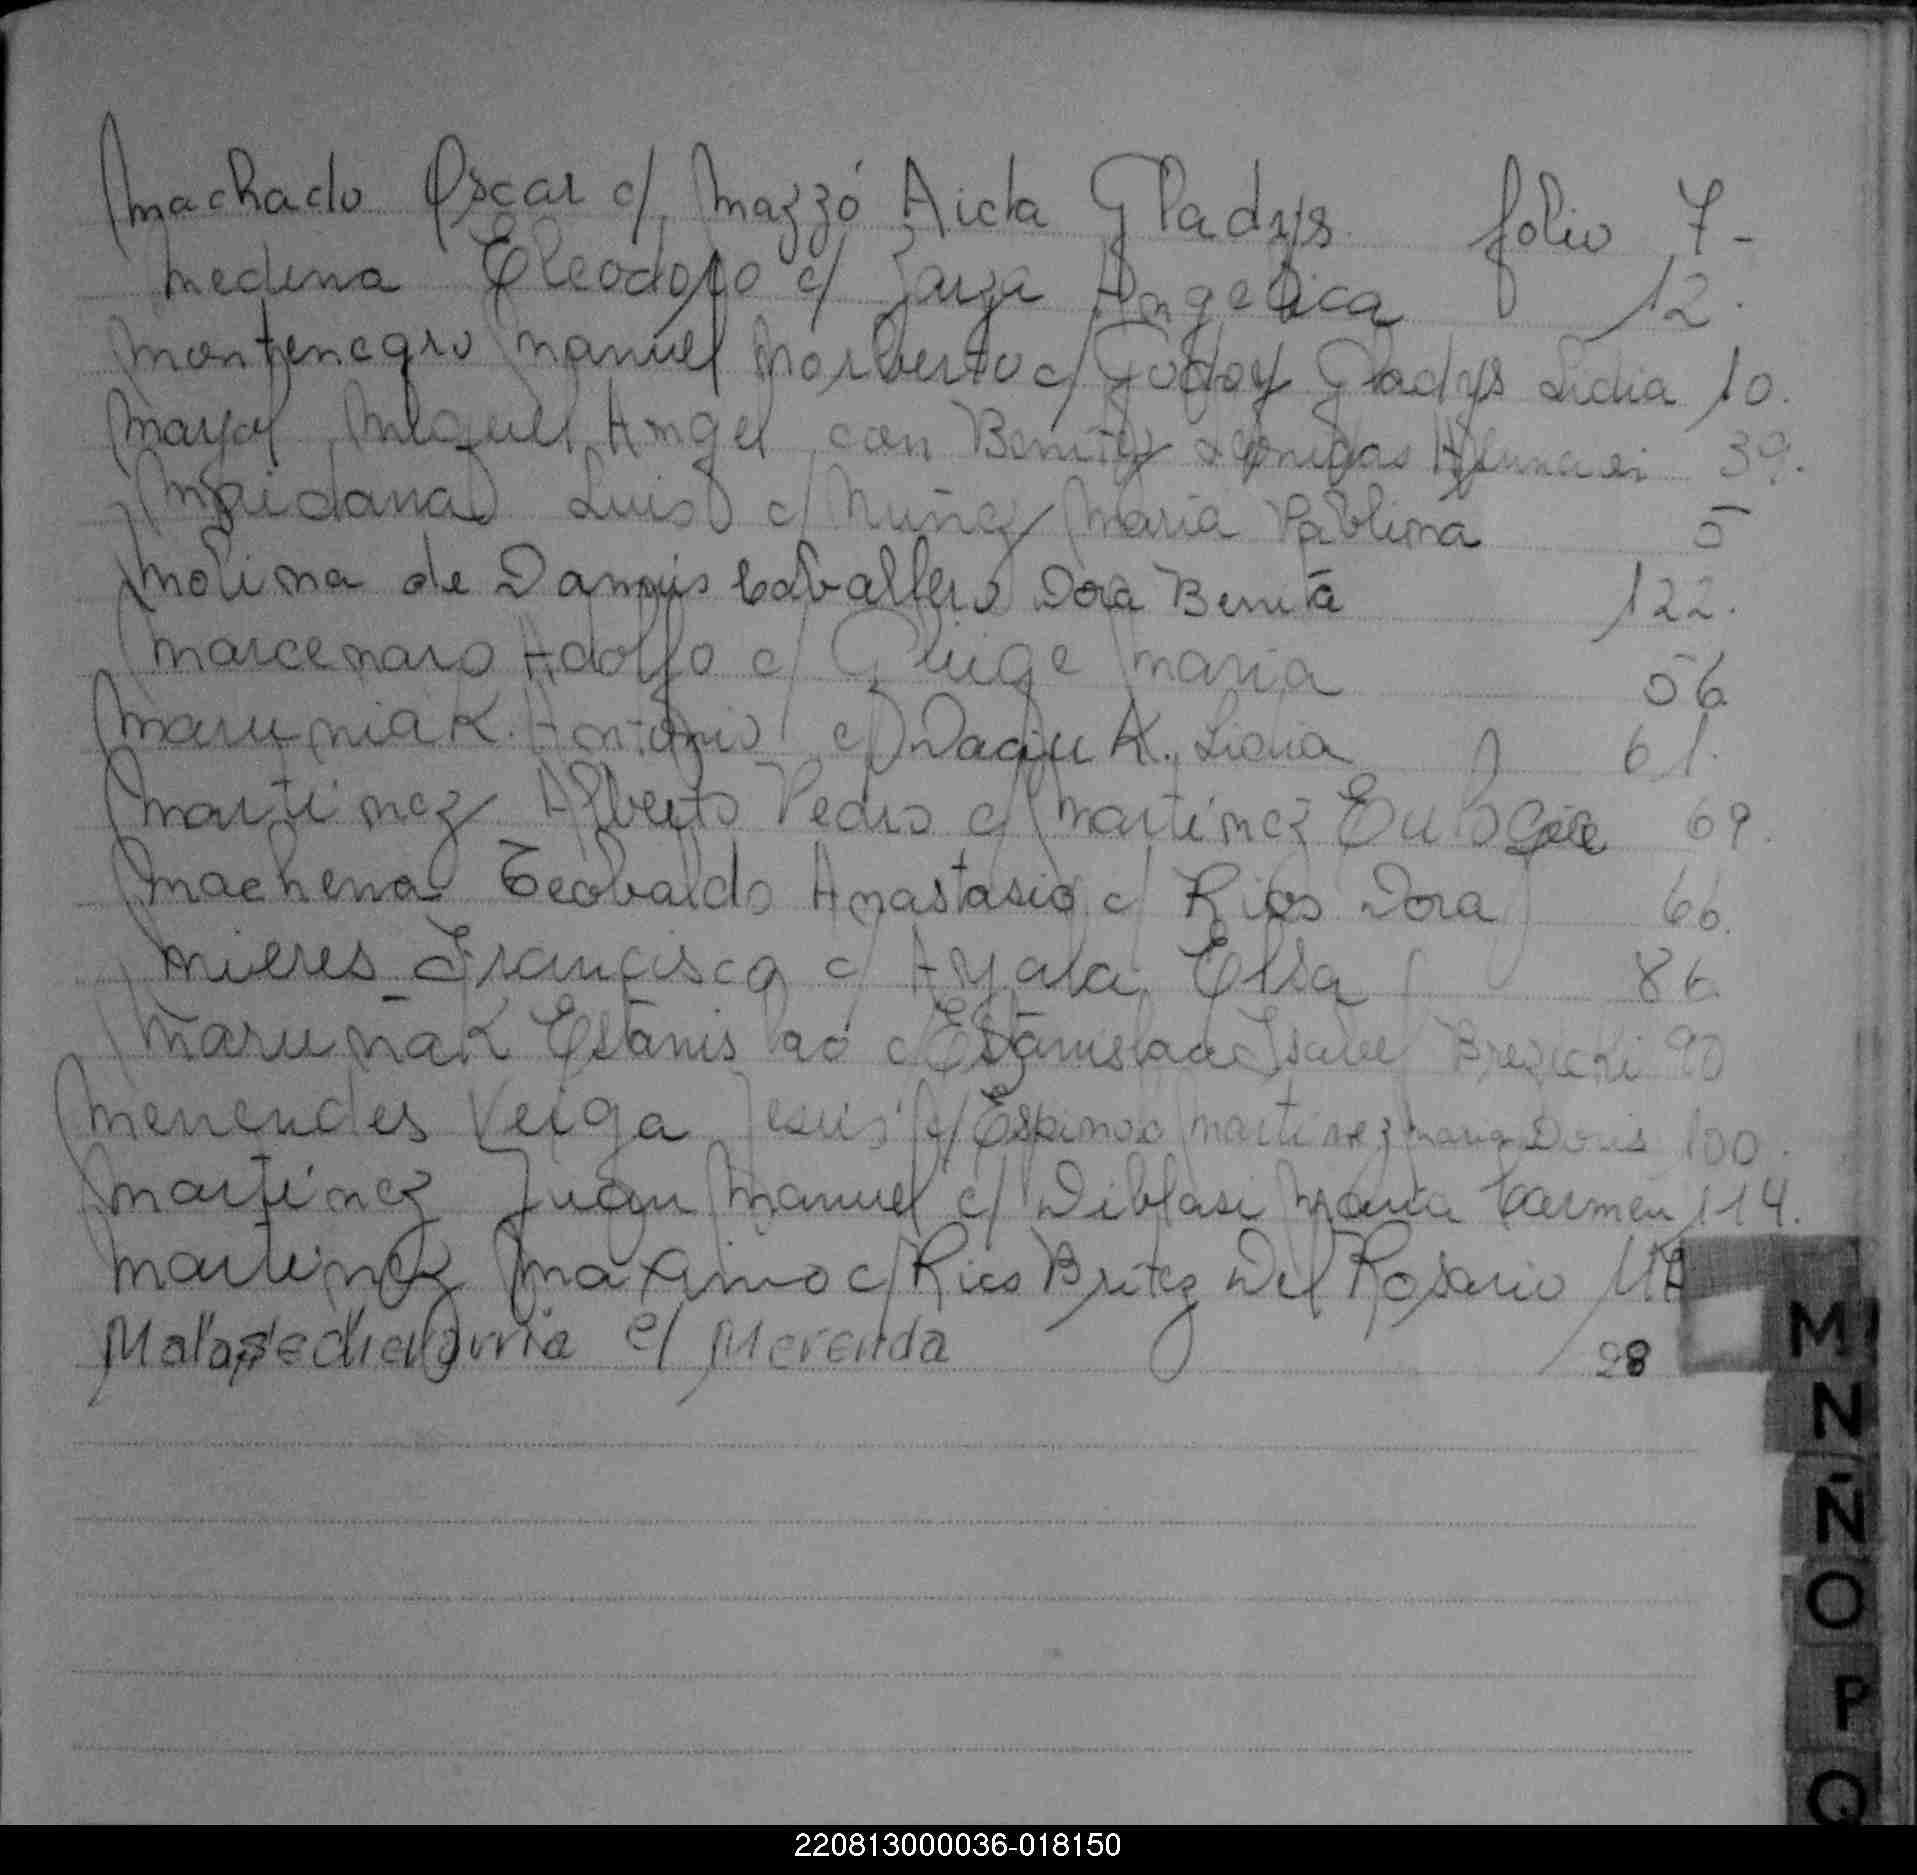 Machado Oscar c/ Mazzó Aida Gladys folio 7-
Medina Eleodoro c/ Zarza Angelica 12.
Montenegro Manuel Norberto c/ Godoy Gladys Lidia 10.
Mayol Miguel Angel con Benitez Leonidas 39.
Maidana Luis c/ Nuñez Maria Pablina 5
Molina de Dannis Caballero Dora Benita 122.
Marcenaro Adolfo c/ Maria 56
Maruniak Antonio c/ K. Lidia 61.
Martinez Alberto Pedro c/ Martinez Eulogia 69.
Machena Teobaldo Anastasio c/ Rios Dora 66.
Mieres Francisco c/ Ayala Elsa 86.
Maruñak Estanislao c/ Estanislada Isabel 90
Menendes Veiga Jesus c/ Espinoa Martinez Maria Doris 100.
Martinez Juan Manuel c/ Diblasi Maria Carmen 114.
Martinez Maximo c/ Rios Britez Del Rosario
c/ Merenda 98
M
N
Ñ
O
P
Q
220813000036-018150